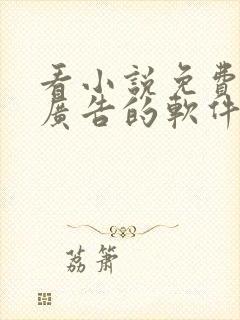 看小說免費
廣告的軟件
荔簫